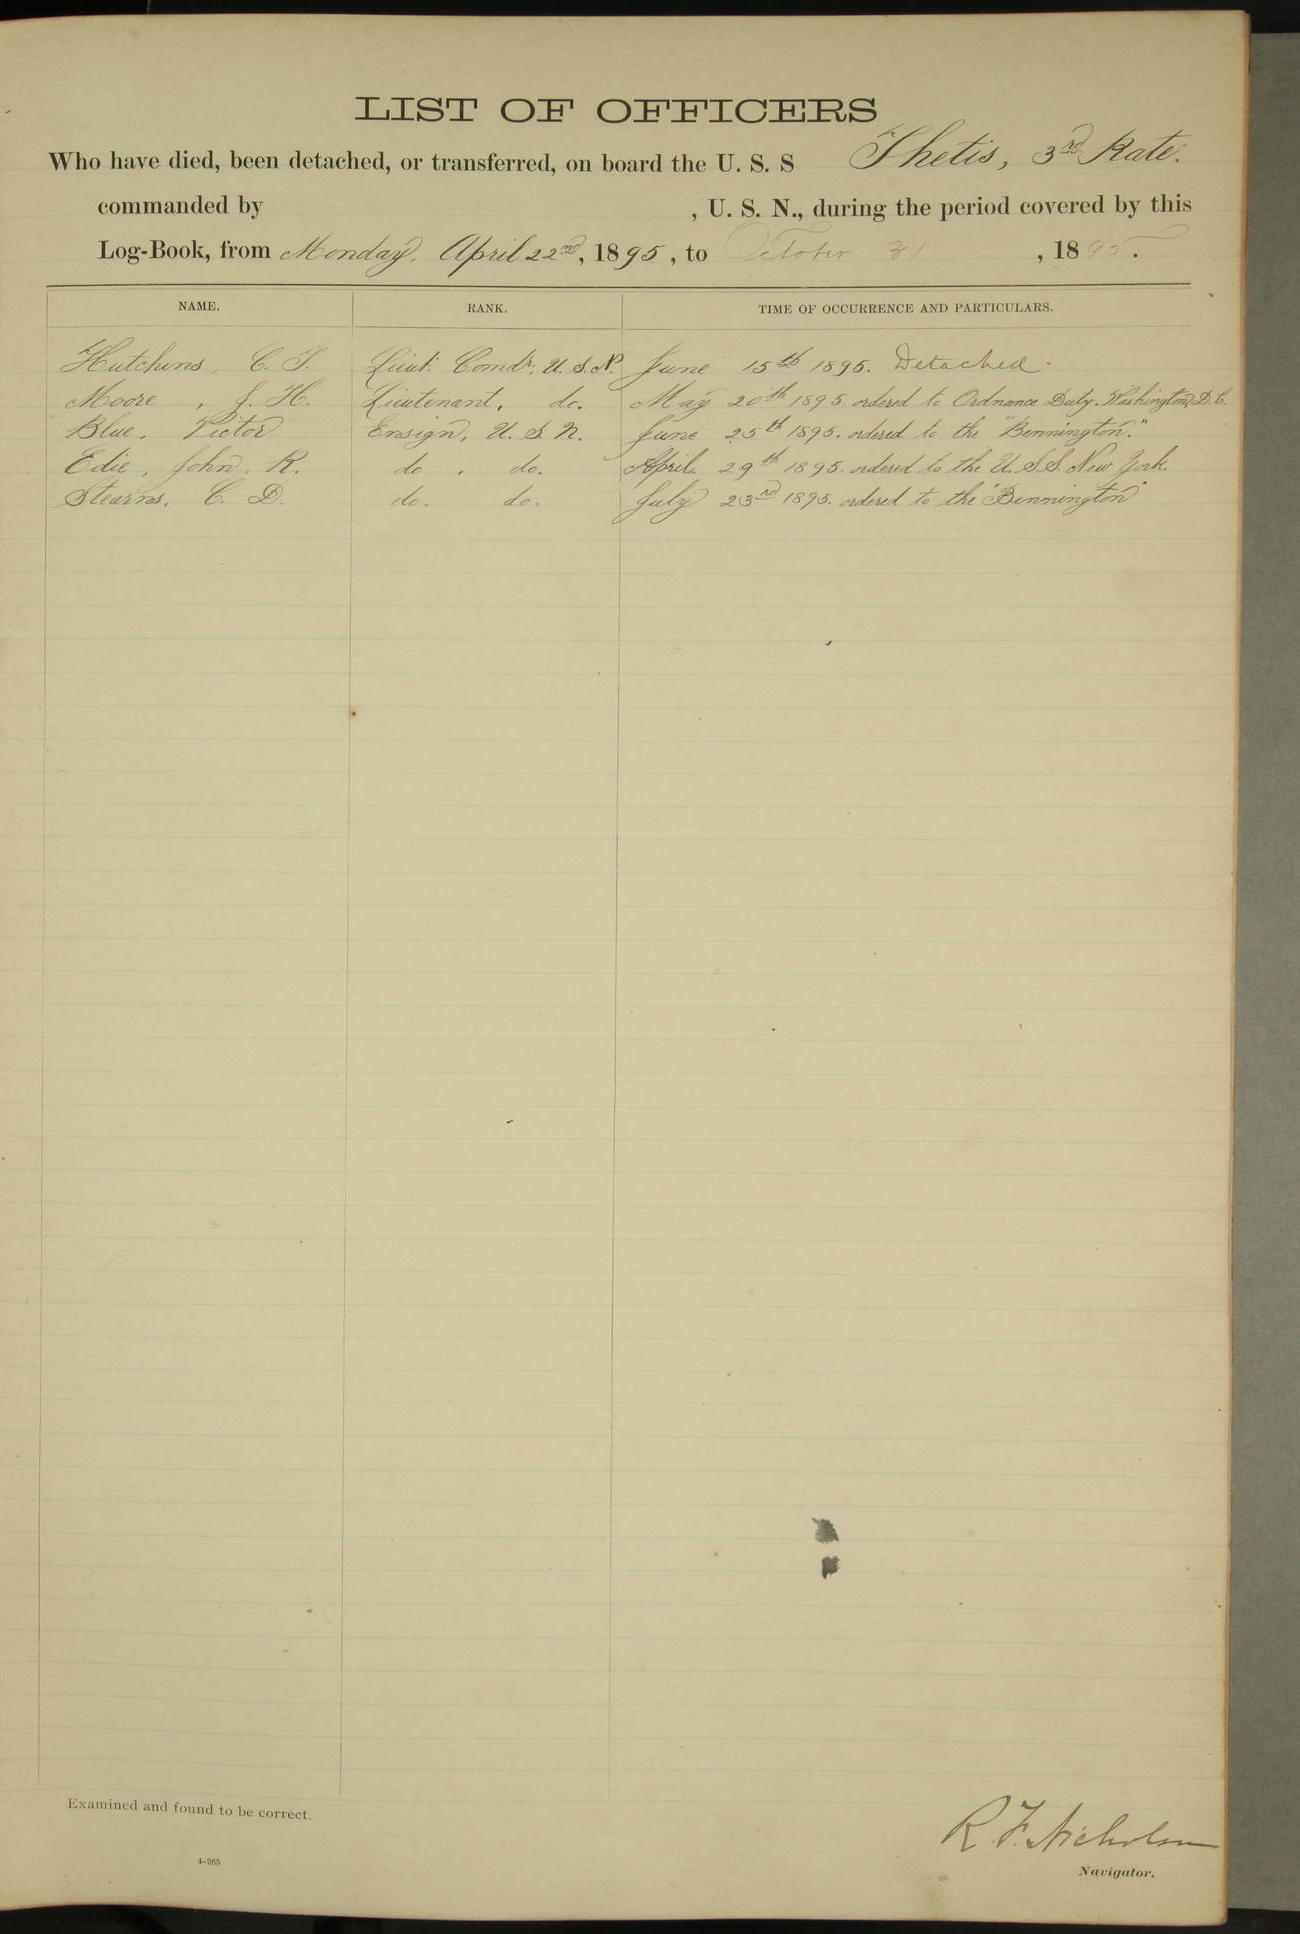 LIST OF OFFICERS
Who have died, been detached, or transferred, on board the U. S. S Thetis, 3rd Rate.
commanded by , U. S. N., during the period covered by this
Log-Book, from Monday, April 22nd, 1895, to October 31, 1895.
NAME. RANK. TIME OF OCCURRENCE AND PARTICULARS.
Hutchins, C. T. Lieut. Comdr. U. S. N. June 15th 1895. Detached.
Moore, J. H. Lieutenant, do. May 20th 1895 ordered to Ordnance Duty. Washington, D.C.
Blue, Victor Ensign, U. S. N. June 25th 1895. ordered to the "Bennington."
Edie, John. R. do. do. April 29th 1895. ordered to the U. S. S. New York.
Stearns, C. D. do. do. July 23rd 1895. ordered to the "Bennington"
Examined and found to be correct.
R. F. Nicholson
4-265
Navigator.